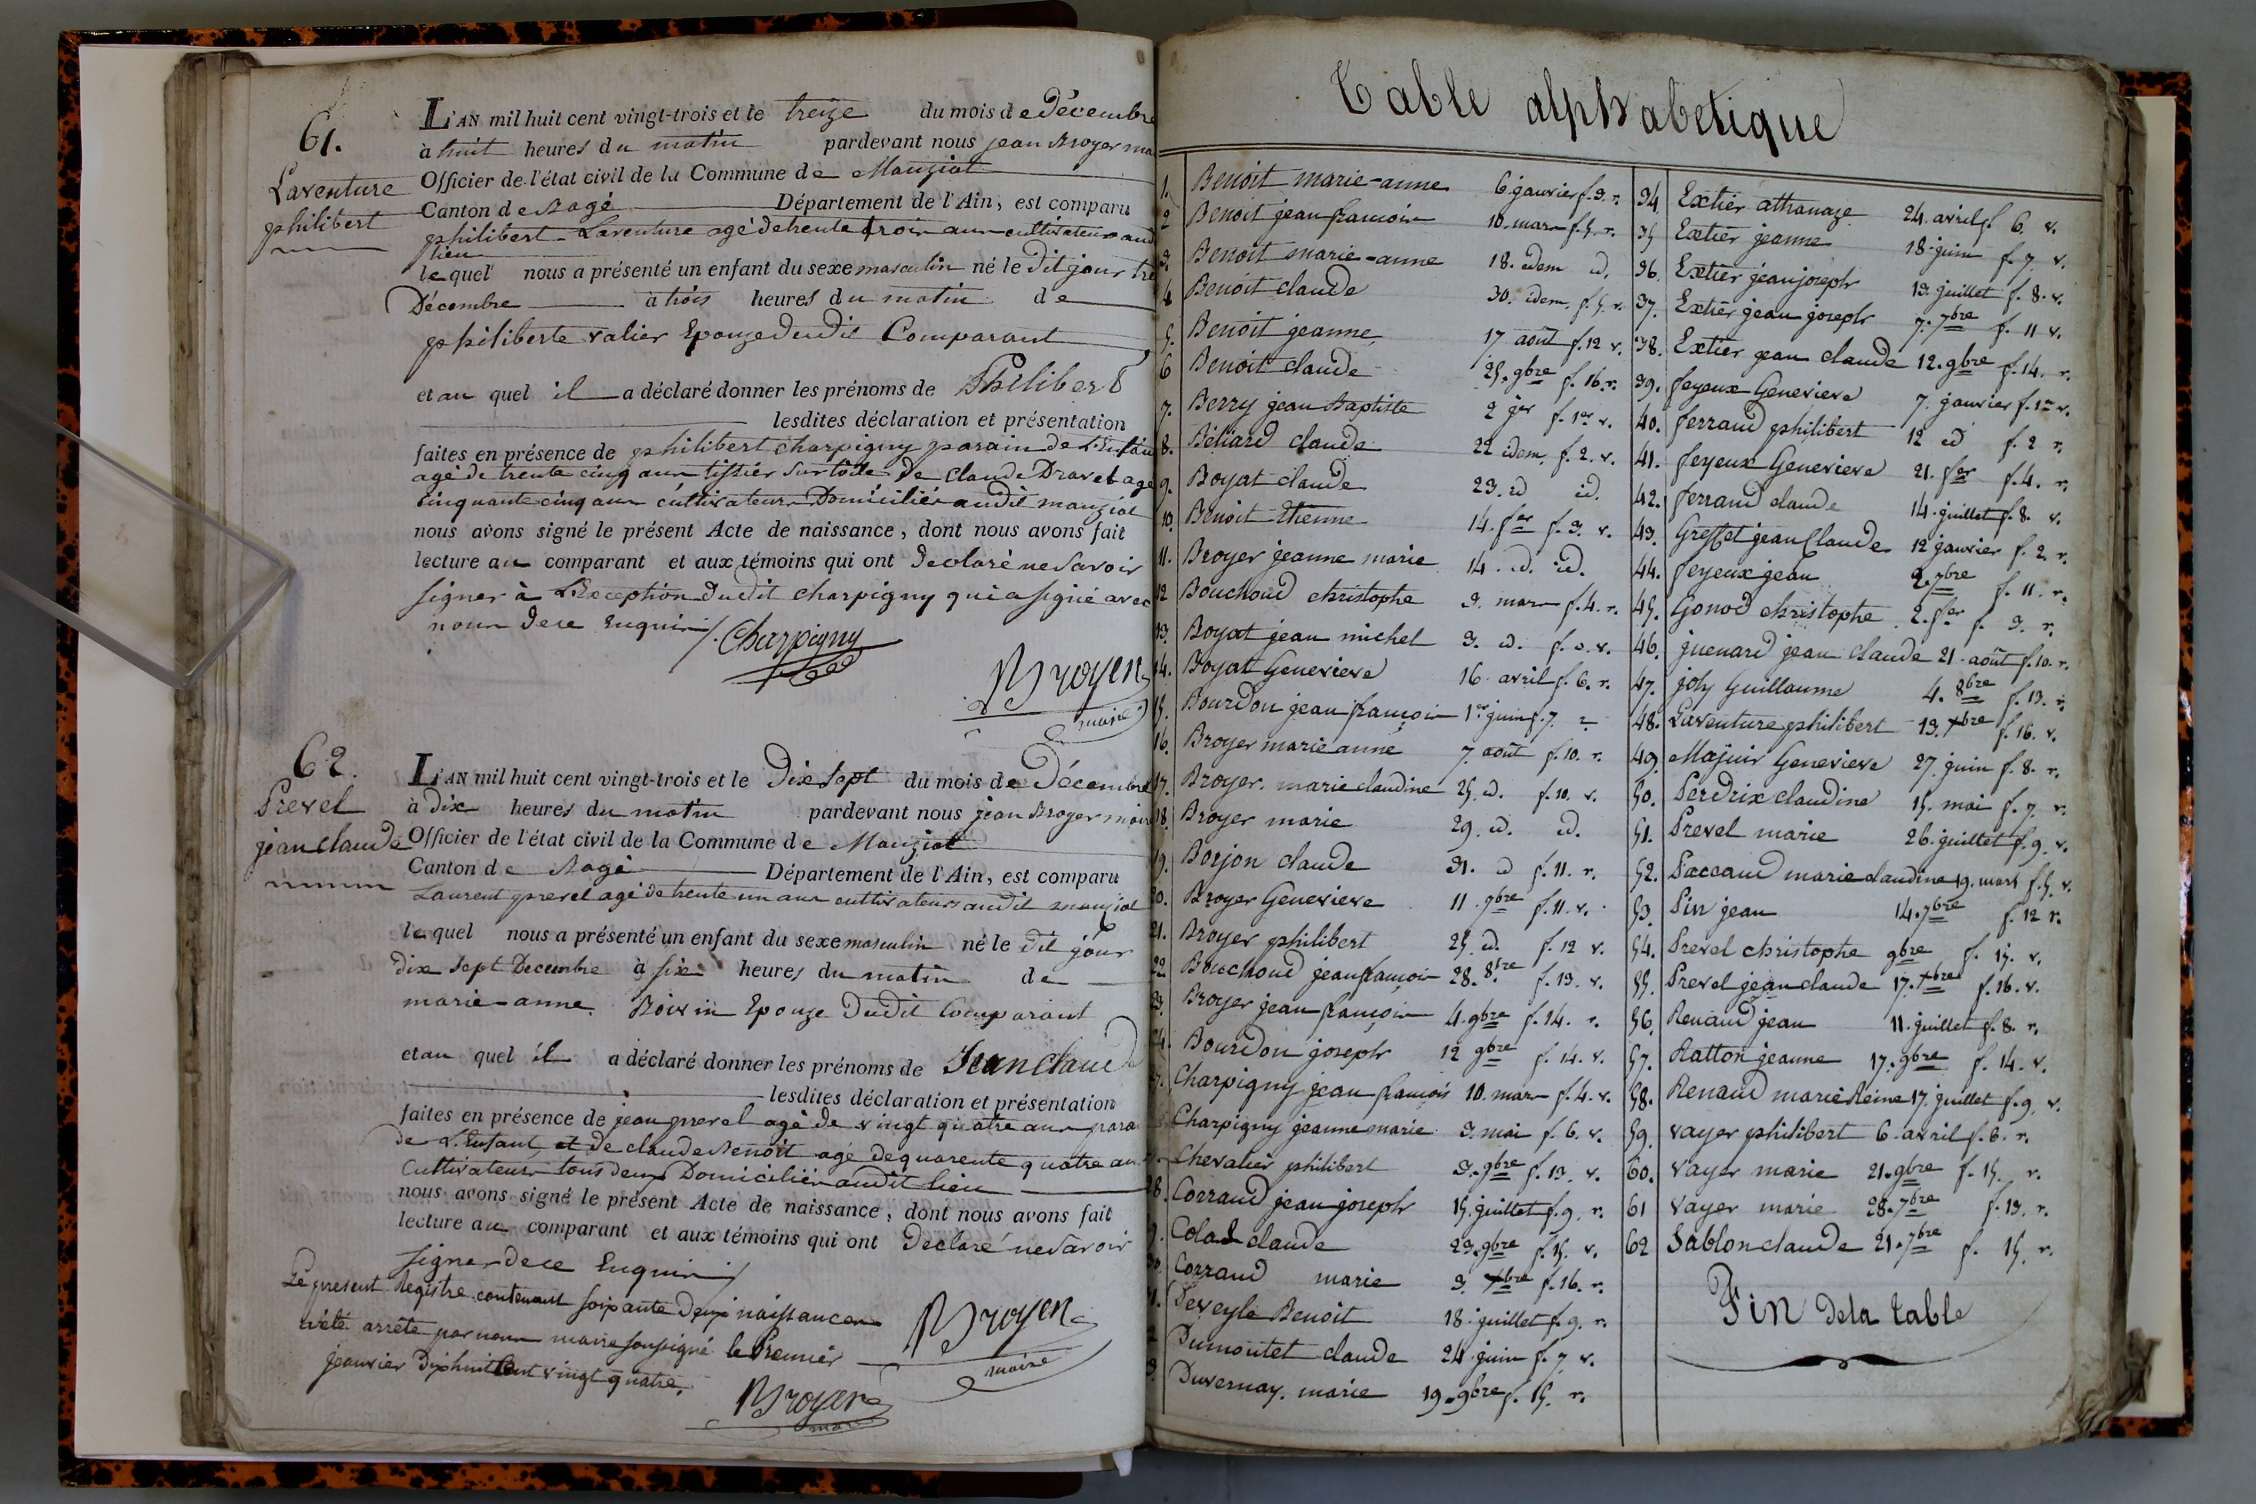 61.
Laventure
philibert
L'AN mil huit cent vingt-trois et le treize du mois de Décembre
à huit heures du matin pardevant nous jean Broyer
Officier de l'état civil de la Commune de Manziat
Canton de Bagé Département de l'Ain, est comparu
philibert Laventure agé de trente trois ans cultivateur
lieu
lequel nous a présenté un enfant du sexe masculin né le dit jour
Décembre à trois heures du matin de
philiberte valier Epouze dudit Comparant
et au quel il a déclaré donner les prénoms de Philibert
lesdites déclaration et présentation
faites en présence de philibert charpigny parain de L'Enfant
agé de trente cinq ans tissier sur toille de claude Dravet agé
cinquante cinq ans cultivateur Domiciliés audit manziat
nous avons signé le présent Acte de naissance, dont nous avons fait
lecture au comparant et aux témoins qui ont Declaré ne Savoir
signer à L'Exception Dudit charpigny qui a signé avec
nous de ce Enquis /. Charpigny
Broyer
maire
62.
Prevel
jean claude
L'AN mil huit cent vingt-trois et le Dix Sept du mois de Décembre
à Dix heures du matin pardevant nous jean Broyer maire
Officier de l'état civil de la Commune de Manziat
Canton de Bagé Département de l'Ain, est comparu
Laurent prevel agé de trente un ans cultivateur audit manziat
lequel nous a présenté un enfant du sexe masculin né le dit jour
dix Sept Decembre à six heures du matin de
marie-anne Boivin Epouze Dudit Comparant
et au quel il a déclaré donner les prénoms de Jean Claude
lesdites déclaration et présentation
faites en présence de jean prevel agé de vingt quatre ans
de L'Enfant et de claude Benoit agé de quarente quatre ans
Cultivateur tous deux Domiciliés audit lieu
nous avons signé le présent Acte de naissance, dont nous avons fait
lecture au comparant et aux témoins qui ont Declaré ne Savoir
signer de ce Enquis /
Le present Registre contenant soixante Deux naissances
a été arrêté par nous maire soussigné le Premier
jeanvier Dix huit Cent vingt quatre.
Broyer
maire
Broyer
Table alphabetique
1. Benoit marie-anne 6 janvier f. 3. r.
2 Benoit jean francois 10. mars f. 5. r.
3. Benoit marie-anne 18. idem id.
4 Benoit claude 30. idem. f. 5. v.
5. Benoit jeanne 17 août f. 12 v.
6 Benoit claude 25. 9bre f. 16. r.
7. Berry jean Baptiste 2 jer f. 1er v.
8. Béliard claude 22 idem. f. 2. v.
9. Boyat claude 23. id id.
10. Benoit Etienne 14. fer f. 3. v.
11. Broyer jeanne marie 14. id. id.
12 Bouchoud christophe 3. mars f. 4. r.
13. Boyat jean michel 3. id. f. o. v.
14. Boyat Genevieve 16 avril f. 6. r.
15. Bourdon jean françois 1er juin f. 7.
16. Broyer marie anne 7. août f. 10. r.
17. Broyer. marie claudine 25. id. f. 10. v.
18. Broyer marie 29. id. id.
19. Borjon claude 31. id f. 11. r.
20. Broyer Genevieve 11. 7bre f. 11. v.
21. Broyer philibert 25. id. f. 12 v.
22 Bouchoud jean françois 28. 8bre f. 13. v.
23. Broyer jean françois 4. 9bre f. 14. r.
24. Bourdon joseph 12 9bre f. 14. v.
Charpigny jean françois 10. mars f. 4. v.
Charpigny jeanne marie 3. mai f. 6. v.
Chevalier philibert 3. 9bre f. 13. v.
28. Corraud jean joseph 15. juillet f. 9. r.
Colas claude 23. 9bre f. 15. v.
Corraud marie 3. xbre f. 16. r.
Deveyle Benoit 18. juillet f. 9. r.
Dumoutet claude 24 juin f. 7 v.
Duvernay. marie 19. 9bre f. 15. r.
34. Extier athanaze 24. avril f. 6. v.
35 Extier jeanne 18. juin f. 7. v.
36. Extier jean joseph 13. juillet f. 8. v.
37. Extier jean joseph 7. 7bre f. 11 v.
38. Extier jean claude 12. 9bre f. 14. r.
39. feyeux Genevieve 7. janvier f. 1er v.
40. ferraud philibert 12 id f. 2 r.
41. feyeux Genevieve 21. fer f. 4. r.
42. ferraud claude 14. juillet f. 8. v.
43. Greffet jean Claude 12 janvier f. 2. r.
44. feyeux jean 2. 7bre f. 11. r.
45. Gonod christophe 2. fer f. 3. r.
46. juenard jean claude 21. août f. 10. r.
47. joly Guillaume 4. 8bre f. 13. r.
48. Laventure philibert 13. xbre f. 16. v.
49. Majuir Genevieve 27. juin f. 8. r.
50. Perdrix claudine 15. mai f. 7. r.
51. Prevel marie 26. juillet f. 9. v.
52. Paccaud marie claudine 19. mars f. 5. v.
53. Pin jean 14. 7bre f. 12 r.
54. Prevel christophe 9bre f. 15. v.
55. Prevel jean claude 17. xbre f. 16. v.
56. Renaud jean 11. juillet f. 8. r.
57. Ratton jeanne 17. 9bre f. 14. v.
58. Renaud marie Reine 17. juillet f. 9. v.
59. vayer philibert 6. avril f. 6. r.
60. vayer marie 21. 9bre f. 15. r.
61 vayer marie 28. 7bre f. 13. r.
62 Sablon claude 21. 7bre f. 15. r.
Fin dela table